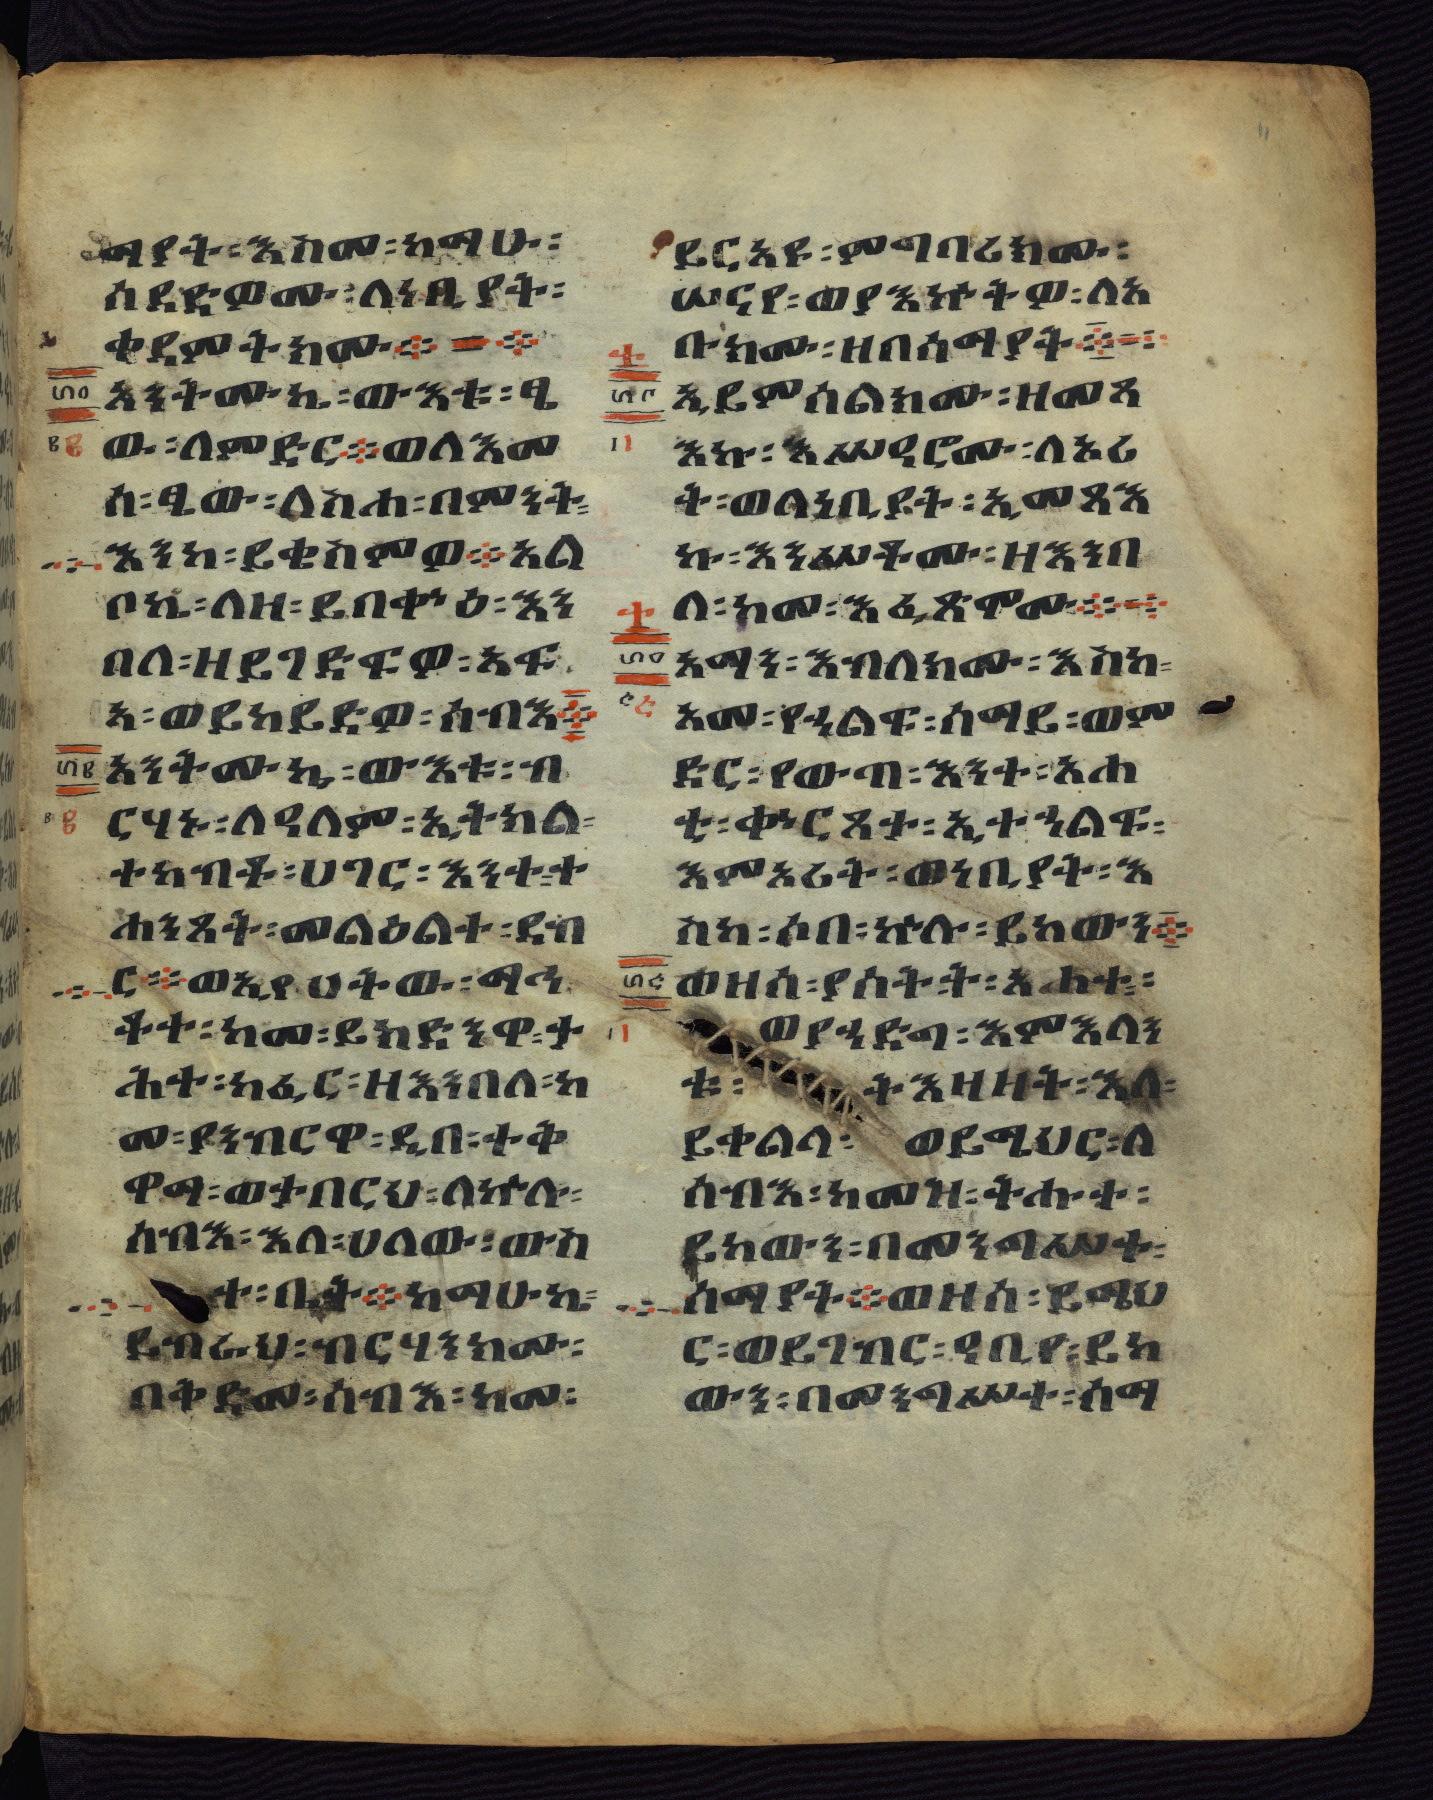 ማያት፡እስመ፡ከማሁ፡
ሰደድዎሙ፡ለነቢያት፡
ቀደምትክሙ።
አንትሙኪ፡ውእቱ፡ፄ
ው፡ለምድር።ወለእመ
ሰ፡ፄው፡ለስሐ፡በምንት፡
እንከ፡ይቄስምዎ።አል
ቦኬ፡ለዘ፡ይበቍዕ፡እን
በለ፡ዘይገድፍዎ፡አፍ
አ፡ወይከይድዎ፡ሰብእ።
አንትሙኬ፡ውእቱ፡ብ
ርሃኑ፡ለዓለም፡ኢትክል፡
ተከብቶ፡ሀገር፡እንተ፡ተ
ሐንጸት፡መልዕልተ፡ደብ
ር።ወኢየሀትው፡ማኅ
ቶተ፡ከመ፡ይክድንዋ፡ታ
ሕተ፡ከፈር፡ዘእንበለ፡ከ
መ፡ያንብርዋ፡ዲበ፡ተቅ
ዋማ፡ወተበርህ፡ለኵሉ፡
ሰብእ፡እለ፡ሀለው፡ውስ
ተ፡ቤት።ከማሁኬ፡
ይብራህ፡ብርሃንክሙ፡
በቅድመ፡ሰብእ፡ከመ፡
ይርአዩ፡ምግባሪክሙ፡
ሠናየ፡ወያእኵትዎ፡ለአ
ቡክሙ፡ዘበሰማያት።
ኢይምሰልክሙ፡ዘመጻ
እኩ፡እሥዓሮሙ፡ለኦሪ
ት፡ወለነቢያት፡ኢመጻእ
ኩ፡እንሥቶሙ፡ዘእንበ
ለ፡ከመ፡እፈጽሞሙ።
አማን፡እብለክሙ፡እስከ፡
አመ፡የኀልፍ፡ሰማይ፡ወም
ድር፡የውጣ፡እንተ፡አሐ
ቲ፡ቍርጸተ፡ኢተኀልፍ፡
እምኦሪት፡ወነቢያት፡እ
ስከ፡ሶበ፡ኵሉ፡ይከውን።
ወዘሰ፡ያስትት፡አሐተ፡
ወያኀድግ፡እምእለን
ቱ፡ትእዛዛት፡እለ፡
ይቀልላ፡ወይሜህር፡ለ
ሰብእ፡ከመዝ፡ትሑተ፡
ይከውን፡በመንግሥተ፡
ሰማያት።ወዘሰ፡ይሜህ
ር፡ወይገብር፡ዓቢየ፡ይከ
ውን፡በመንግሥተ፡ሰማ